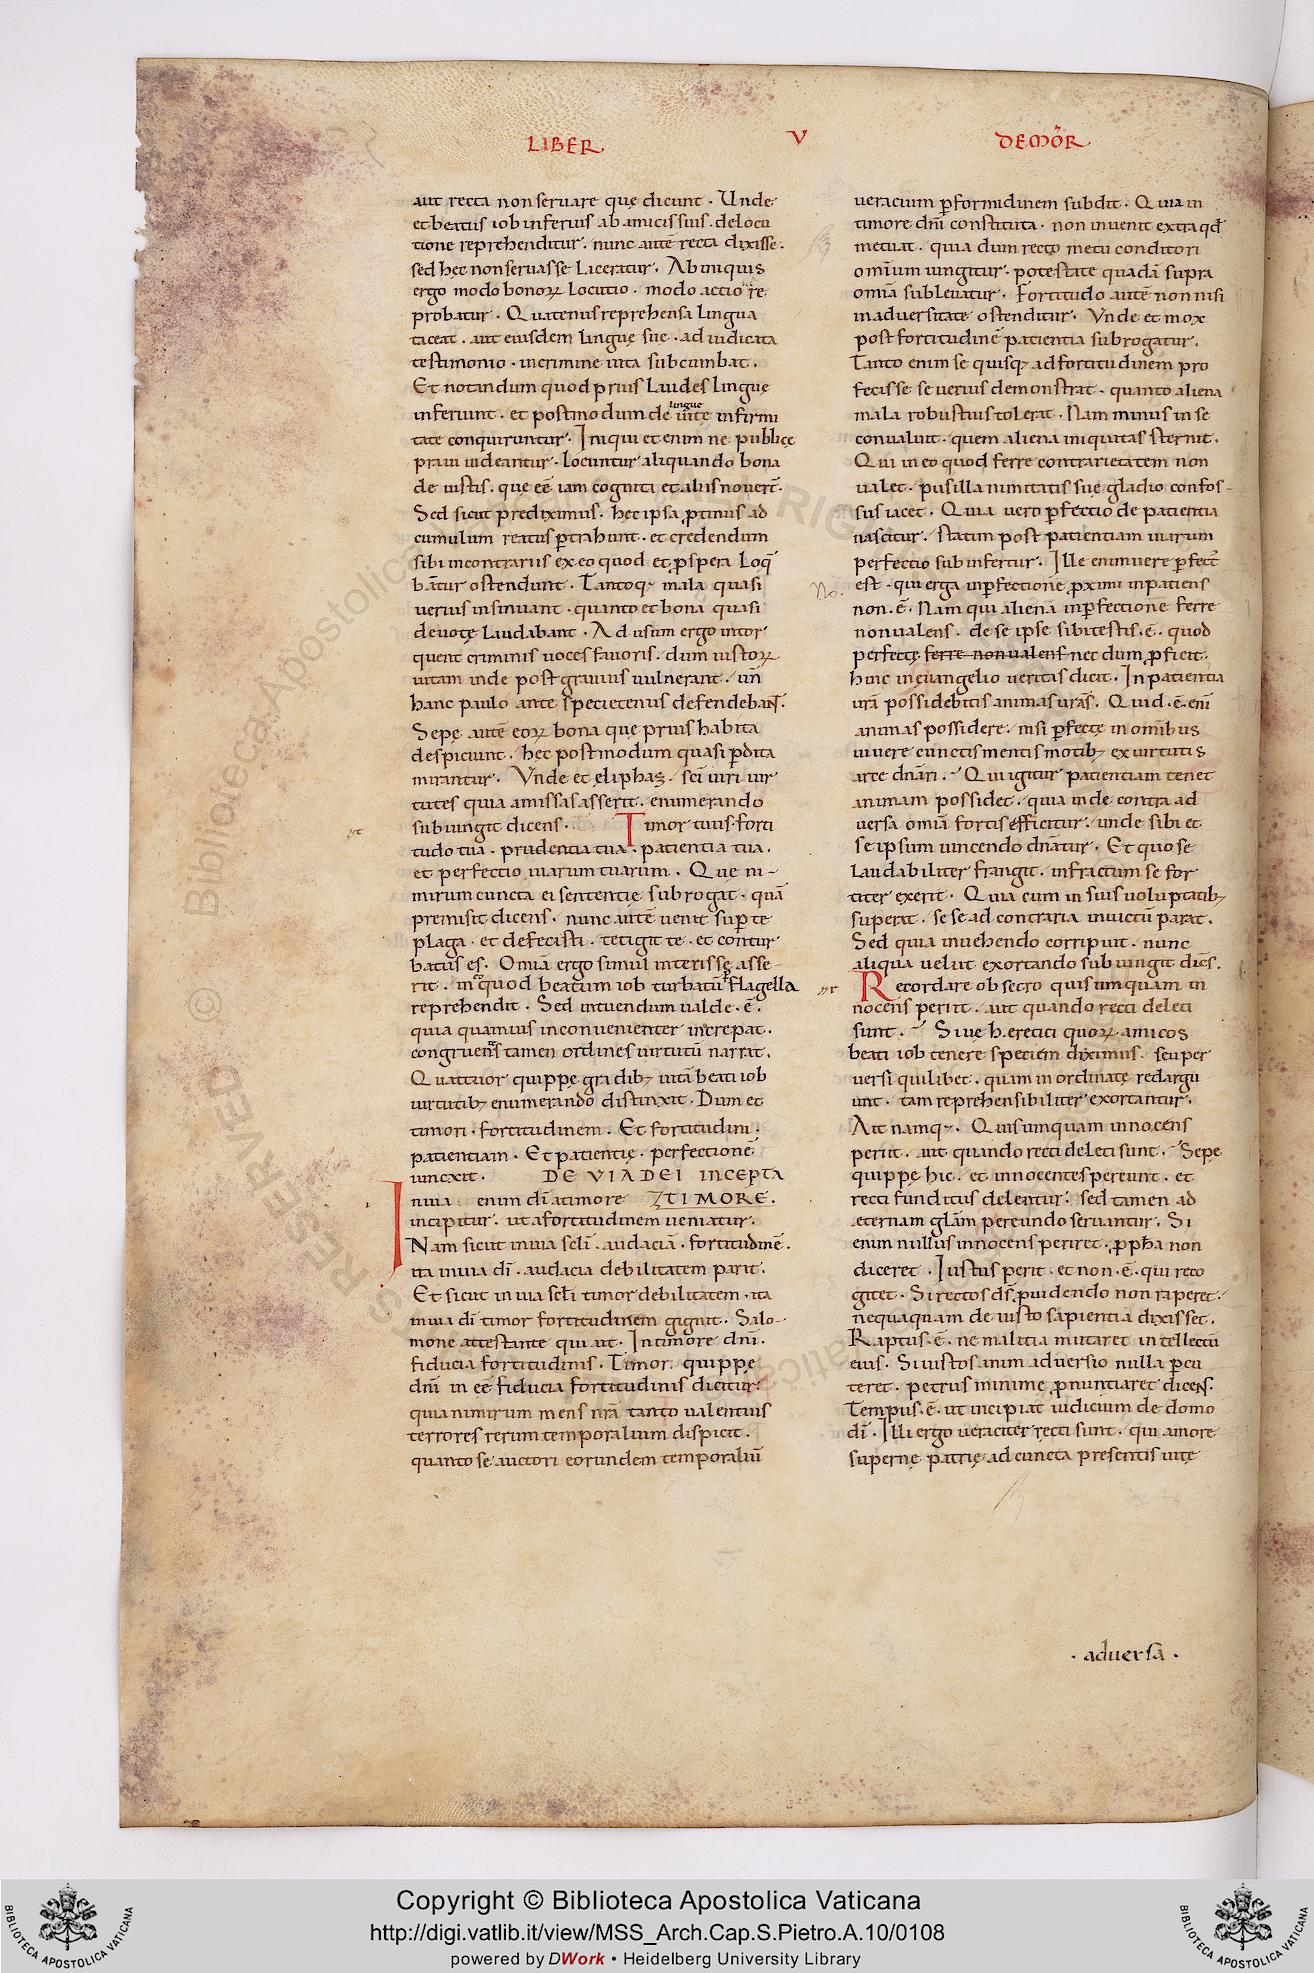 LIBER V DE MOR̄
aut recta non seruare quę dicunt . Unde
et beatus iob inferius ab amicis suis . de locu
tione reprehenditur . nunc autē recta dixisse .
sed hęc non seruasse laceratur . Ab iniquis
ergo modo bonoꝝ locutio . modo actio re
probatur . Quatenus reprehensa lingua
taceat . aut eiusdem linguę suę . ad iudicata
testimonio . in crimine uita subcumbat .
Et notandum quod prius laudes linguę
inferunt . et postmodum de uitę infirmi
linguę
tate conquiruntur . Iniqui et enim ne publicę
praui uideantur . locuntur aliquando bona
de iustis . que eē iam cogniti et aliis nouert̄ .
Sed sicut prediximus . hęc ipsa ꝓtinus ad
cumulum reatus ꝑtrahunt . et credendum
sibi in contrariis ex eo quod et ꝓspera loq̄
bātur ostendunt . Tantoq; mala quasi
uerius insinuant . quanto et bona quasi
deuotę laudabant . Ad usum ergo intor
quent criminis uoces fauoris . dum iustoꝝ
uitam inde post grauius uulnerant . un̄
hanc paulo ante specietenus defendebant .
Sepę autē eoꝝ bona quę prius habita
despiciunt . hęc postmodum quasi ꝑdita
mirantur . Vnde et eliphaz . sc̄i uiri uir
tutes quia amissas asserit . enumerando
subiungit dicens . Timor tuus . forti
tudo tua . prudentia tua . patientia tua .
et perfectio uiarum tuarum . Que ni-
mirum cuncta ei sententię subrogat . quā
premisit dicens . nunc autē uenit suꝑ te
plaga . et defecisti . tetigit te . et contur
batus es . Omīa ergo simul interisse asse-
rit . in quod beatum iob turbatū ꝑ flagella
reprehendit . Sed intuendum ualde . ē .
quia quamuis inconuenienter increpat .
congruens tamen ordines uirtutū narrat .
Quattuor quippę gradib; uitā beati iob
uirtutib; enumerando distinxit . Dum et
timori . fortitudinem . Et fortitudini .
patientiam . Et patientię . perfectionē
iuncxit . DE VIA DEI INCEPTA
In uia enim dī a timore TIMORE .
incipitur . ut a fortitudinem ueniatur .
Nam sicut in uia sclī . audaciā . fortitudinē .
ita in uia dī . audacia debilitatem parit .
Et sicut in uia sclī timor debilitatem . ita
in uia dī timor fortitudinem gignit . Salo-
mone attestante qui ait . In timore dnī .
fiducia fortitudinis . Timor quippę
dnī in eē fiducia fortitudinis dicitur
quia nimirum mens nr̄a tanto ualentius
terrores rerum temporalium dispicit .
quanto se auctori eorundem temporaliū
ueracium ꝑ formidinem subdit . Quia in
timore dnī constituta . non inuenit extra qđ
metuat . quia dum recto metu conditori
omīum iungitur . potestate quadā supra
omīa subleuatur . Fortitudo autē non nisi
in aduersitate ostenditur . Vnde et mox
post fortitudinē patientia subrogatur .
Tanto enim se quisq; ad fortitudinem pro
fecisse se uerius demonstrat . quanto aliena
mala robustius tolerat . Nam minus in se
conualuit . quem aliena iniquitas sternit .
Qui in eo quod ferre contrarietatem non
ualet . pusilla nimitatis suę gladio confos-
sus iacet . Quia uero ꝑfectio de patientia
nascitur . statim post patientiam uiarum
perfectio subinfertur . Ille enim uere ꝑfect᷒
est . qui erga inꝑfectionē ꝓximi inpatiens
No.
non . ē . Nam qui alienā inꝑfectionē ferre
non ualens . de se ipse sibi testis . ē . quod
perfectę ferre non ualens nec dum ꝓficit .
hinc in euangelio ueritas dicit . In patientia
ur̄a possidebitis animas ur̄as . Quid . ē . enī
animas possidere . nisi ꝑfectę in omībus
uiuere cunctis mentis motib; ex uirtutis
arte dn̄ari . Qui igitur patientiam tenet
animam possidet . quia inde contra ad
uersa omīa fortis efficitur . unde sibi et
se ipsum uincendo dn̄atur . Et quo se
laudabiliter frangit . infractum se for
titer exerit . Quia cum in suis uoluptatib;
superat . se se ad contraria inuictū parat .
Sed quia inuehendo corripuit . nunc
aliqua uelut exortando subiungit dicēs .
Recordare obsecro quis umquam in
nocens periit . aut quando recti deleti
sunt . Siuę heretici quoꝝ amicos
beati iob tenere speciem diximus . seu per
uersi quilibet . quam inordinatę redargu
unt . tam reprehensibiliter exortantur .
Ait namq; . Quis umquam innocens
periit . aut quando recti deleti sunt . Sepę
quippę hic . et innocentes pereunt . et
recti funditus delentur . sed tamen ad
eternam glām pereundo seruantur . Si
enim nullus innocens periret . ꝓpħa non
diceret . Iustus perit . et non . ē . qui reco
gitet . Si rectos ds̄ ꝓuidendo non raperet .
nequaquam de iusto sapientia dixisset .
Raptus . ē . ne malitia mutaret intellectū
eius . Si iustos animaduersio nulla ꝑcu
teret . petrus minime ꝓnuntiaret dicens .
Tempus . ē . ut incipiat iudicium de domo
dī . Illi ergo ueraciter recti sunt . qui amore
supernę patrię ad cuncta presentis uitę
. aduersa .
Copyright © Biblioteca Apostolica Vaticana
http://digi.vatlib.it/view/MSS_Arch.Cap.S.Pietro.A.10/0108
powered by DWork • Heidelberg University Library